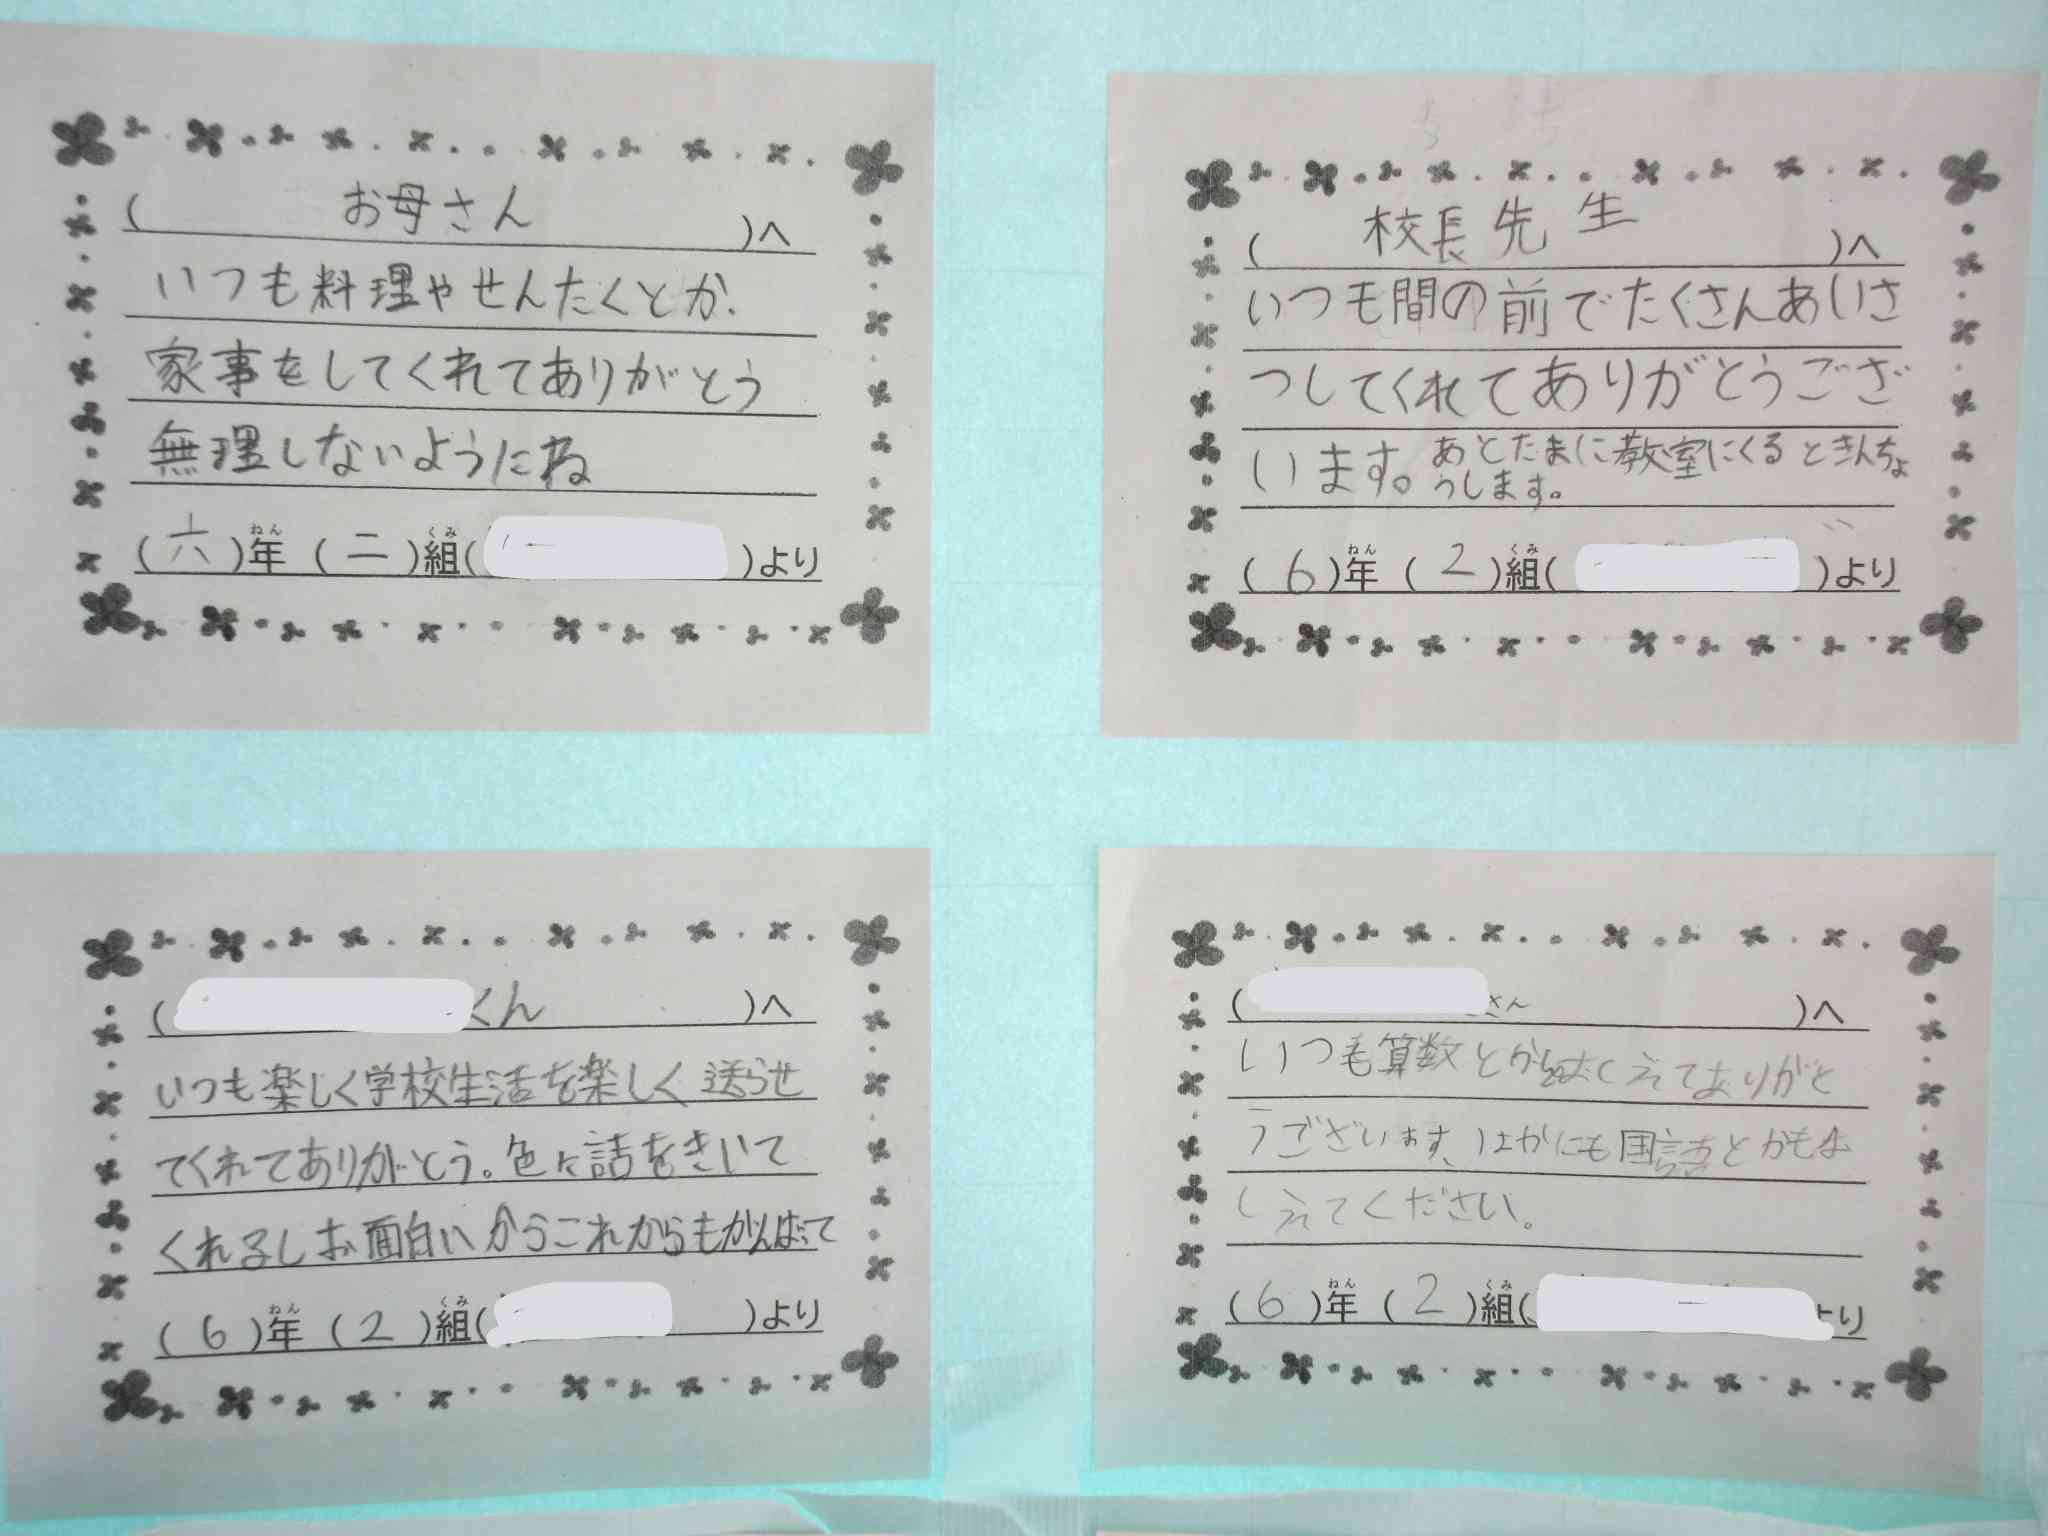 (お母さん)へ
いつも料理やせんたくとか、
家事をしてくれてありがとう
無理しないようにね
(六)年(二)組( )より
ねん くみ
(校長先生)へ
いつも間の前でたくさんあいさ
つしてくれてありがとうござ
います。あとたまに教室にくるときんちょ
うします。
(6)年(2)組( )より
ねん くみ
( くん)へ
いつも楽しく学校生活を楽しく送らせ
てくれてありがとう。色々話をきいて
くれるしお面白いからこれからもがんばって
(6)年(2)組( )より
ねん くみ
( さん)へ
いつも算数とか えてありがと
うございます、ほかにも国語とかもお
しえてください。
(6)年(2)組( より
ねん くみ